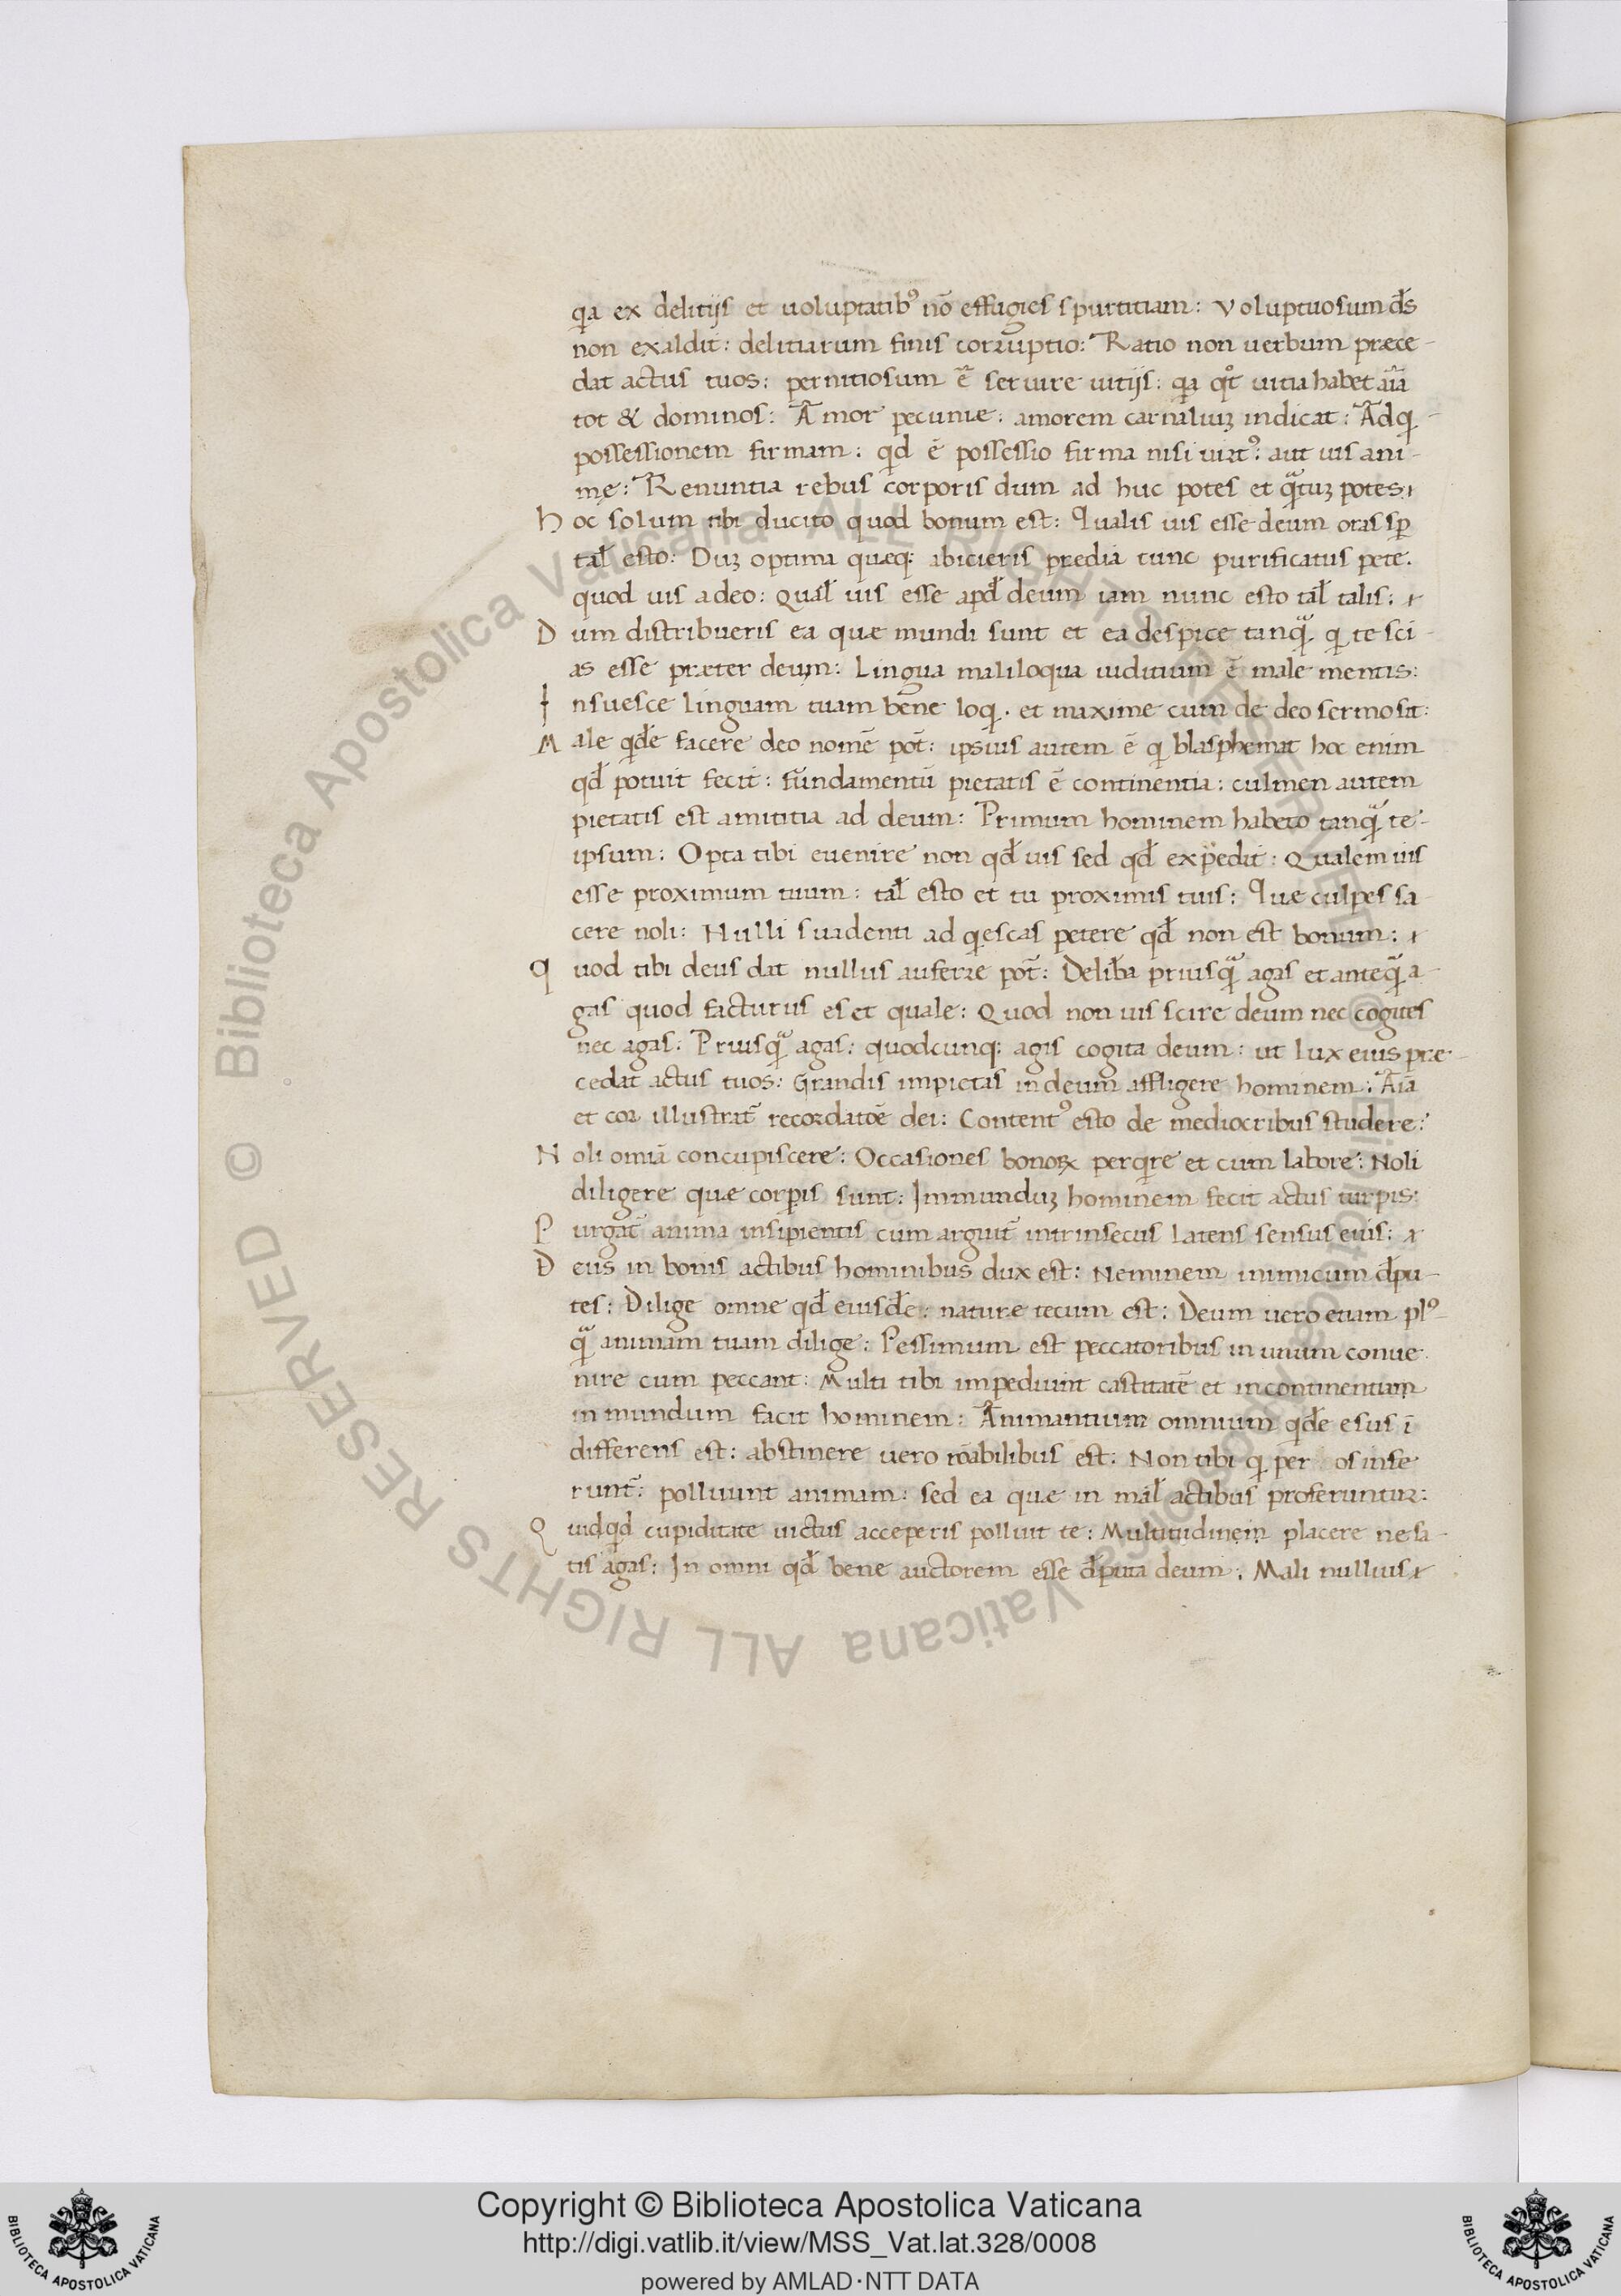 qa ex delitijs et uoluptatibꝰ nō effugies spurtitiam: Voluptuosum ds̄
non exaldit: delitiarum finis corruptio: Ratio non uerbum præce-
dat actus tuos: pernitiosum ē seruire uitijs: qa qt uitia habet aīa
tot & dominos: Amor pecuniæ: amorem carnaliuꝫ indicat: Adqͥ-
possessionem firmam: qd ē possessio firma nisi uirtꝰ: aut uis ani-
mę: Renuntia rebus corporis dum ad huc potes et qͣtuꝫ potes:
Hoc solum tibi ducito quod bonum est: Qualis uis esse deum oras sp̄
tal̄ esto: Duꝫ optima quæq: abieceris predia tunc purificatus pete.
quod uis a deo: Qual̄ uis esse apd̄ deum iam nunc esto tal̄ talis:
Dum distribueris ea quæ mundi sunt et ea despice tanqͣ qͥ te sci-
as esse præter deum: Lingua maliloqua iuditium ē male mentis:
Insuesce linguam tuam bene loqͥ. et maxime cum de deo sermo sit:
Male qͥde facere deo nomē pot̄: ipsius autem ē qͥ blasphemat hoc enim
qd̄ potuit fecit: fundamentū pietatis ē continentia: culmen autem
pietatis est amititia ad deum: Primum hominem habeto tanqͣ te-
ipsum: Opta tibi euenire non qd̄ uis sed qd̄ expedit: Qualem uis
esse proximum tuum: tal̄ esto et tu proximis tuis: Quæ culpes fa-
cere noli: Nulli suadenti adqͥescas petere qd̄ non est bonum:
Quod tibi deus dat nullus auferre pot̄: Delib̄a priusqͣ agas et anteqͣ a-
gas quod facturus es et quale: Quod non uis scire deum nec cogites
nec agas: Priusqͣ agas: quodcunq: agis cogita deum: ut lux eius præ-
cedat actus tuos: Grandis impietas in deum affligere hominem: Aīa
et cor illustrat̄ recordatōe dei: Contentꝰ esto de mediocribus studere:
Noli omīa concupiscere: Occasiones bonoꝝ perqͥre et cum labore: Noli
diligere quæ corp̄is sunt: Immunduꝫ hominem fecit actus turpis:
Purgat̄ anima insipientis cum arguit̄ intrinsecus latens sensus eius:
Deus in bonis actibus hominibus dux est: Neminem inimicum d̄pu-
tes: Dilige omne qd̄ eiusdē: naturæ tecum est: Deum uero etiam plꝰ-
qͣ animam tuam dilige: Pessimum est peccatoribus in unum conue-
nire cum peccant: Multi tibi impediunt castitatē et incontinentiam
inmundum facit hominem: Animantium omnium qͥde esus ī
differens est: abstinere uero rōabilibus est: Non tibi qͥ per os infe
runt̄: polluunt animam: sed ea quæ in mal̄ actibus proferuntur:
Quidqd cupiditate uictus acceperis polluit te: Multitudinem placere ne sa-
tis agas: In omni qd̄ bene auctorem esse d̄puta deum: Mali nullius
Copyright © Biblioteca Apostolica Vaticana
http://digi.vatlib.it/view/MSS_Vat.lat.328/0008
powered by AMLAD·NTT DATA
BIBLIOTECA APOSTOLICA VATICANA
BIBLIOTECA APOSTOLICA VATICANA
© Biblioteca Apostolica Vaticana ALL RIGHTS RESERVED
© Biblioteca Apostolica Vaticana ALL RIGHTS RESERVED